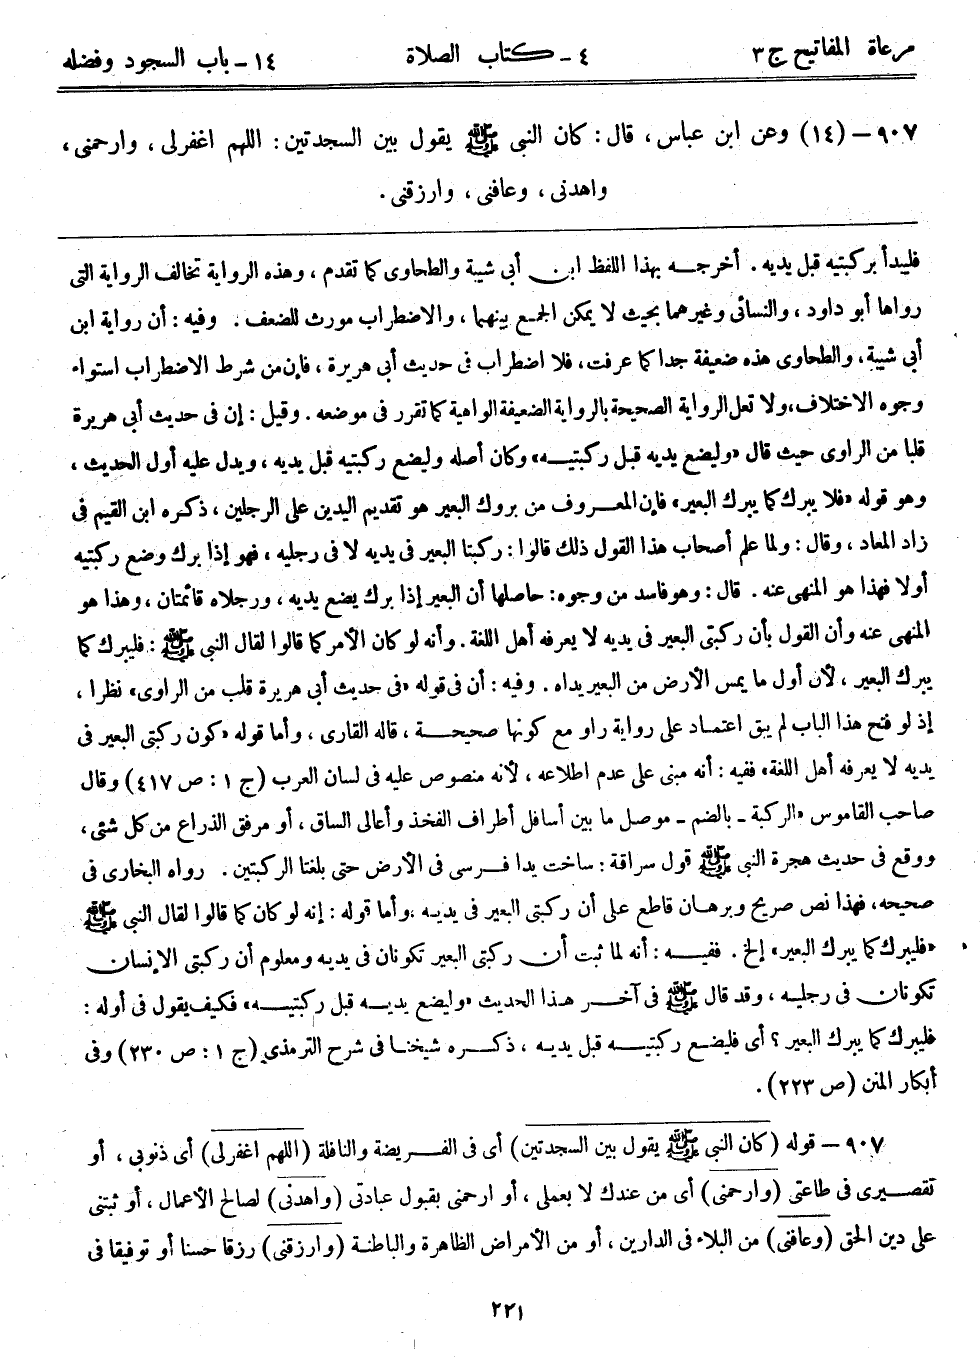 مرعاة المفاتيح ج ٣ ٤ ـ كتاب الصلاة ١٤ ـ باب السجود وفضله
٩٠٧ – (١٤) وعن ابن عباس، قال: كان النبي ﷺ يقول بين السجدتين: اللهم اغفرلى، وارحمنى،
واهدنى، وعافنى، وارزقنى.
فليبدأ بركبتيه قبل يديه. أخرجه بهذا اللفظ ابن أبي شيبة والطحاوى كما تقدم، وهذه الرواية تخالف الرواية التى
رواها أبو داود، والنسائى وغيرهما بحيث لا يمكن الجمع بينهما، والاضطراب مورث للضعف. وفيه: أن رواية ابن
أبي شيبة، والطحاوى هذه ضعيفة جدا كما عرفت، فلا اضطراب فى حديث أبي هريرة، فإن من شرط الاضطراب استواء
وجوه الاختلاف، ولا تعل الرواية الصحيحة بالرواية الضعيفة الواهية كما تقرر فى موضعه. وقيل: إن فى حديث أبى هريرة
قلبا من الراوى حيث قال «وليضع يديه قبل ركبتيه» وكان أصله وليضع ركبتيه قبل يديه، ويدل عليه أول الحديث،
وهو قوله «فلا يبرك كما يبرك البعير» فإن المعروف من بروك البعير هو تقديم اليدين على الرجلين، ذكره ابن القيم فى
زاد المعاد، وقال: ولما علم أصحاب هذا القول ذلك قالوا: ركبتا البعير فى يديه لا فى رجليه، فهو إذا برك وضع ركبتيه
أولا فهذا هو المنهى عنه. قال: وهو فاسد من وجوه: حاصلها أن البعير إذا برك يضع يديه، ورجلاه قائمتان، وهذا هو
المنهى عنه وأن القول بأن ركبتى البعير فى يديه لا يعرفه أهل اللغة. وأنه لو كان الأمر كما قالوا لقال النبي ﷺ: فليبرك كما
يبرك البعير، لأن أول ما يمس الأرض من البعير يداه. وفيه: أن فى قوله «فى حديث أبي هريرة قلب من الراوى» نظرا،
إذ لو فتح هذا الباب لم يبق اعتماد على رواية راو مع كونها صحيحة، قاله القارى، وأما قوله «كون ركبتى البعير فى
يديه لا يعرفه أهل اللغة» ففيه: أنه مبنى على عدم اطلاعه، لأنه منصوص عليه فى لسان العرب (ج ١: ص ٤١٧) وقال
صاحب القاموس «الركبة ـ بالضم ـ موصل ما بين أسافل أطراف الفخذ وأعالى الساق، أو مرفق الذراع من كل شئى،
ووقع فى حديث هجرة النبي ﷺ قول سراقة: ساخت يدا فرسى فى الأرض حتى بلغتا الركبتين. رواه البخارى فى
صحيحه، فهذا نص صريح وبرهان قاطع على أن ركبتى البعير فى يديه، وأما قوله: إنه لو كان كما قالوا لقال النبي ﷺ
«فليبرك كما يبرك البعير» إلخ. ففيه: أنه لما ثبت أن ركبتى البعير تكونان فى يديه ومعلوم أن ركبتى الإنسان
تكونان فى رجليه، وقد قال ﷺ فى آخر هذا الحديث «وليضع يديه قبل ركبتيه» فكيف يقول فى أوله:
فليبرك كما يبرك البعير؟ أى فليضع ركبتيه قبل يديه، ذكره شيخنا فى شرح الترمذي (ج ١: ص ٢٣٠) وفى
أبكار المنن (ص ٢٢٣).
٩٠٧ – قوله (كان النبي ﷺ يقول بين السجدتين) أى فى الفريضة والنافلة (اللهم اغفرلى) أى ذنوبى، أو
تقصيرى فى طاعتى (وارحمنى) أى من عندك لا بعملى، أو ارحمنى بقبول عبادتى (واهدنى) لصالح الأعمال، أو ثبتنى
على دين الحق (وعافنى) من البلاء فى الدارين، أو من الأمراض الظاهرة والباطنة (وارزقنى) رزقا حسنا أو توفيقا فى
٢٢١